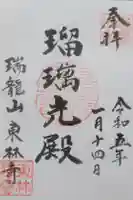 奉拝
令和五年
一月十四日
瑠璃光殿
瑞龍山 東林寺